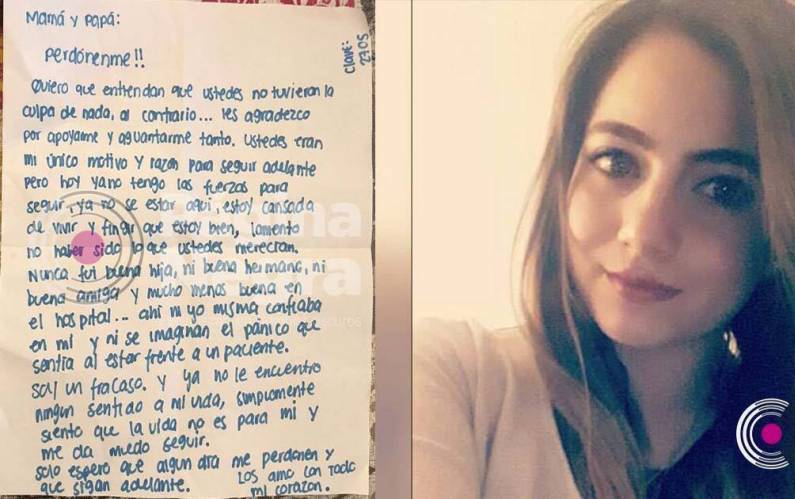 Mamá y Papá:
Clave:
2705
Perdónenme!!
Quiero que entiendan que ustedes no tuvieron la
culpa de nada, al contrario... les agradezco
por apoyarme y aguantarme tanto. Ustedes eran
mi único motivo y razón para seguir adelante
pero hoy ya no tengo las fuerzas para
seguir, ya no se estar aquí, estoy cansada
de vivir y fingir que estoy bien, lamento
no haber sido lo que ustedes merecían.
Nunca fui buena hija, ni buena hermana, ni
buena amiga y mucho menos buena en
el hospital... ahí ni yo misma confiaba
en mí y ni se imaginan el pánico que
sentía al estar frente a un paciente.
Soy un fracaso. Y ya no le encuentro
ningún sentido a mi vida, simplemente
siento que la vida no es para mi y
me da miedo seguir.
Solo espero que algún día me perdonen y
que sigan adelante.
Los amo con todo
mi corazón.